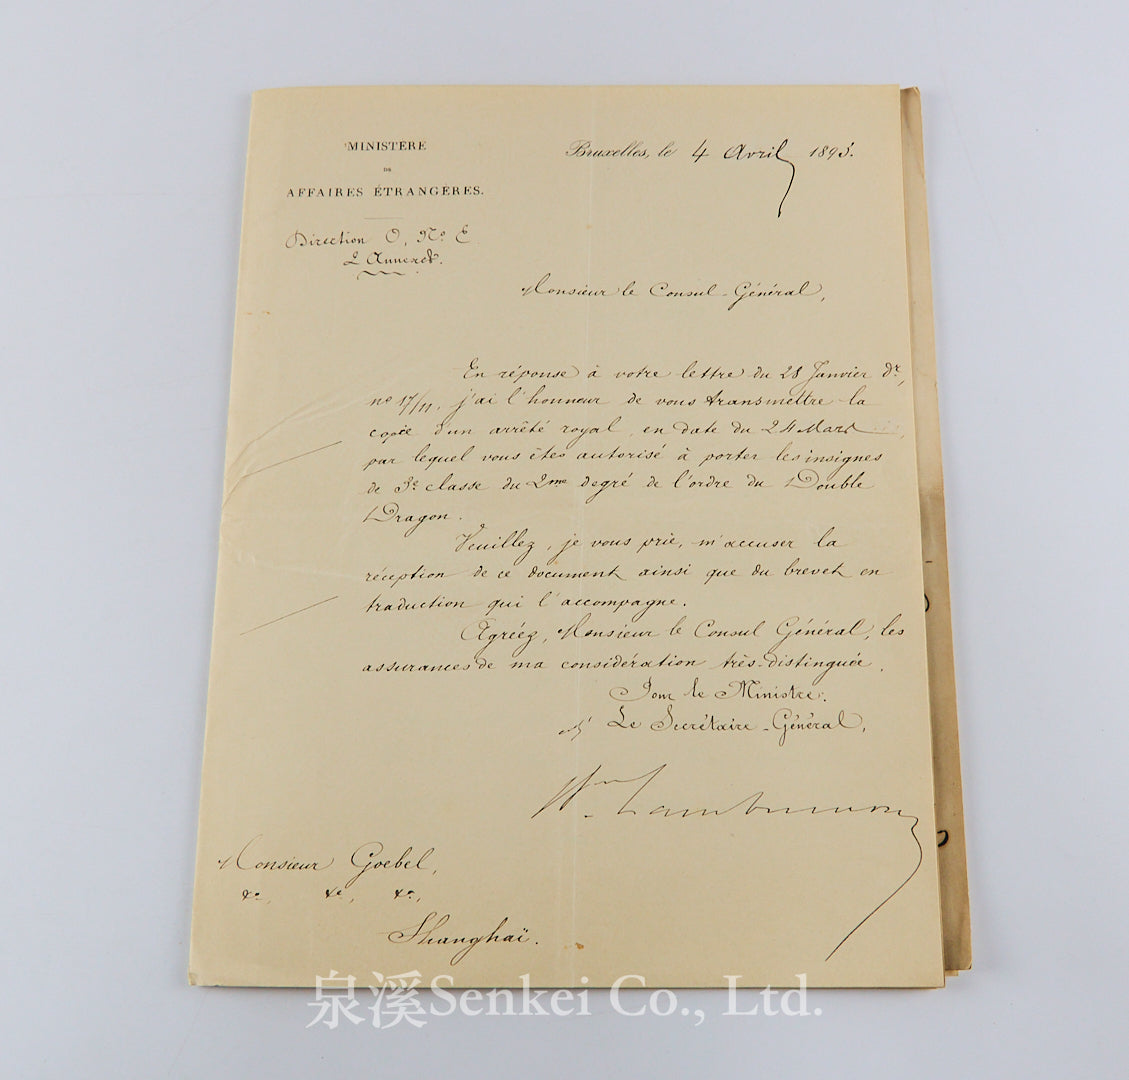 MINISTÈRE
DES
AFFAIRES ÉTRANGÈRES.
Bruxelles, le 4 Avril 1895.
Direction O, No E
2 Annexes.
Monsieur le Consul-Général,
En réponse à votre lettre du 28 Janvier dr,
no 17/11, j'ai l'honneur de vous transmettre la
copie d'un arrêté royal, en date du 24 Mars
par lequel vous êtes autorisé à porter les insignes
de 3e classe du 2me degré de l'ordre du Double
Dragon.
Veuillez, je vous prie, m'accuser la
réception de ce document ainsi que du brevet en
traduction qui l'accompagne.
Agréez, Monsieur le Consul Général, les
assurances de ma considération très-distinguée.
Pour le Ministre:
Le Secrétaire-Général,
Monsieur Goebel,
&a, &a, &a,
Shanghaï.
泉溪Senkei Co., Ltd.